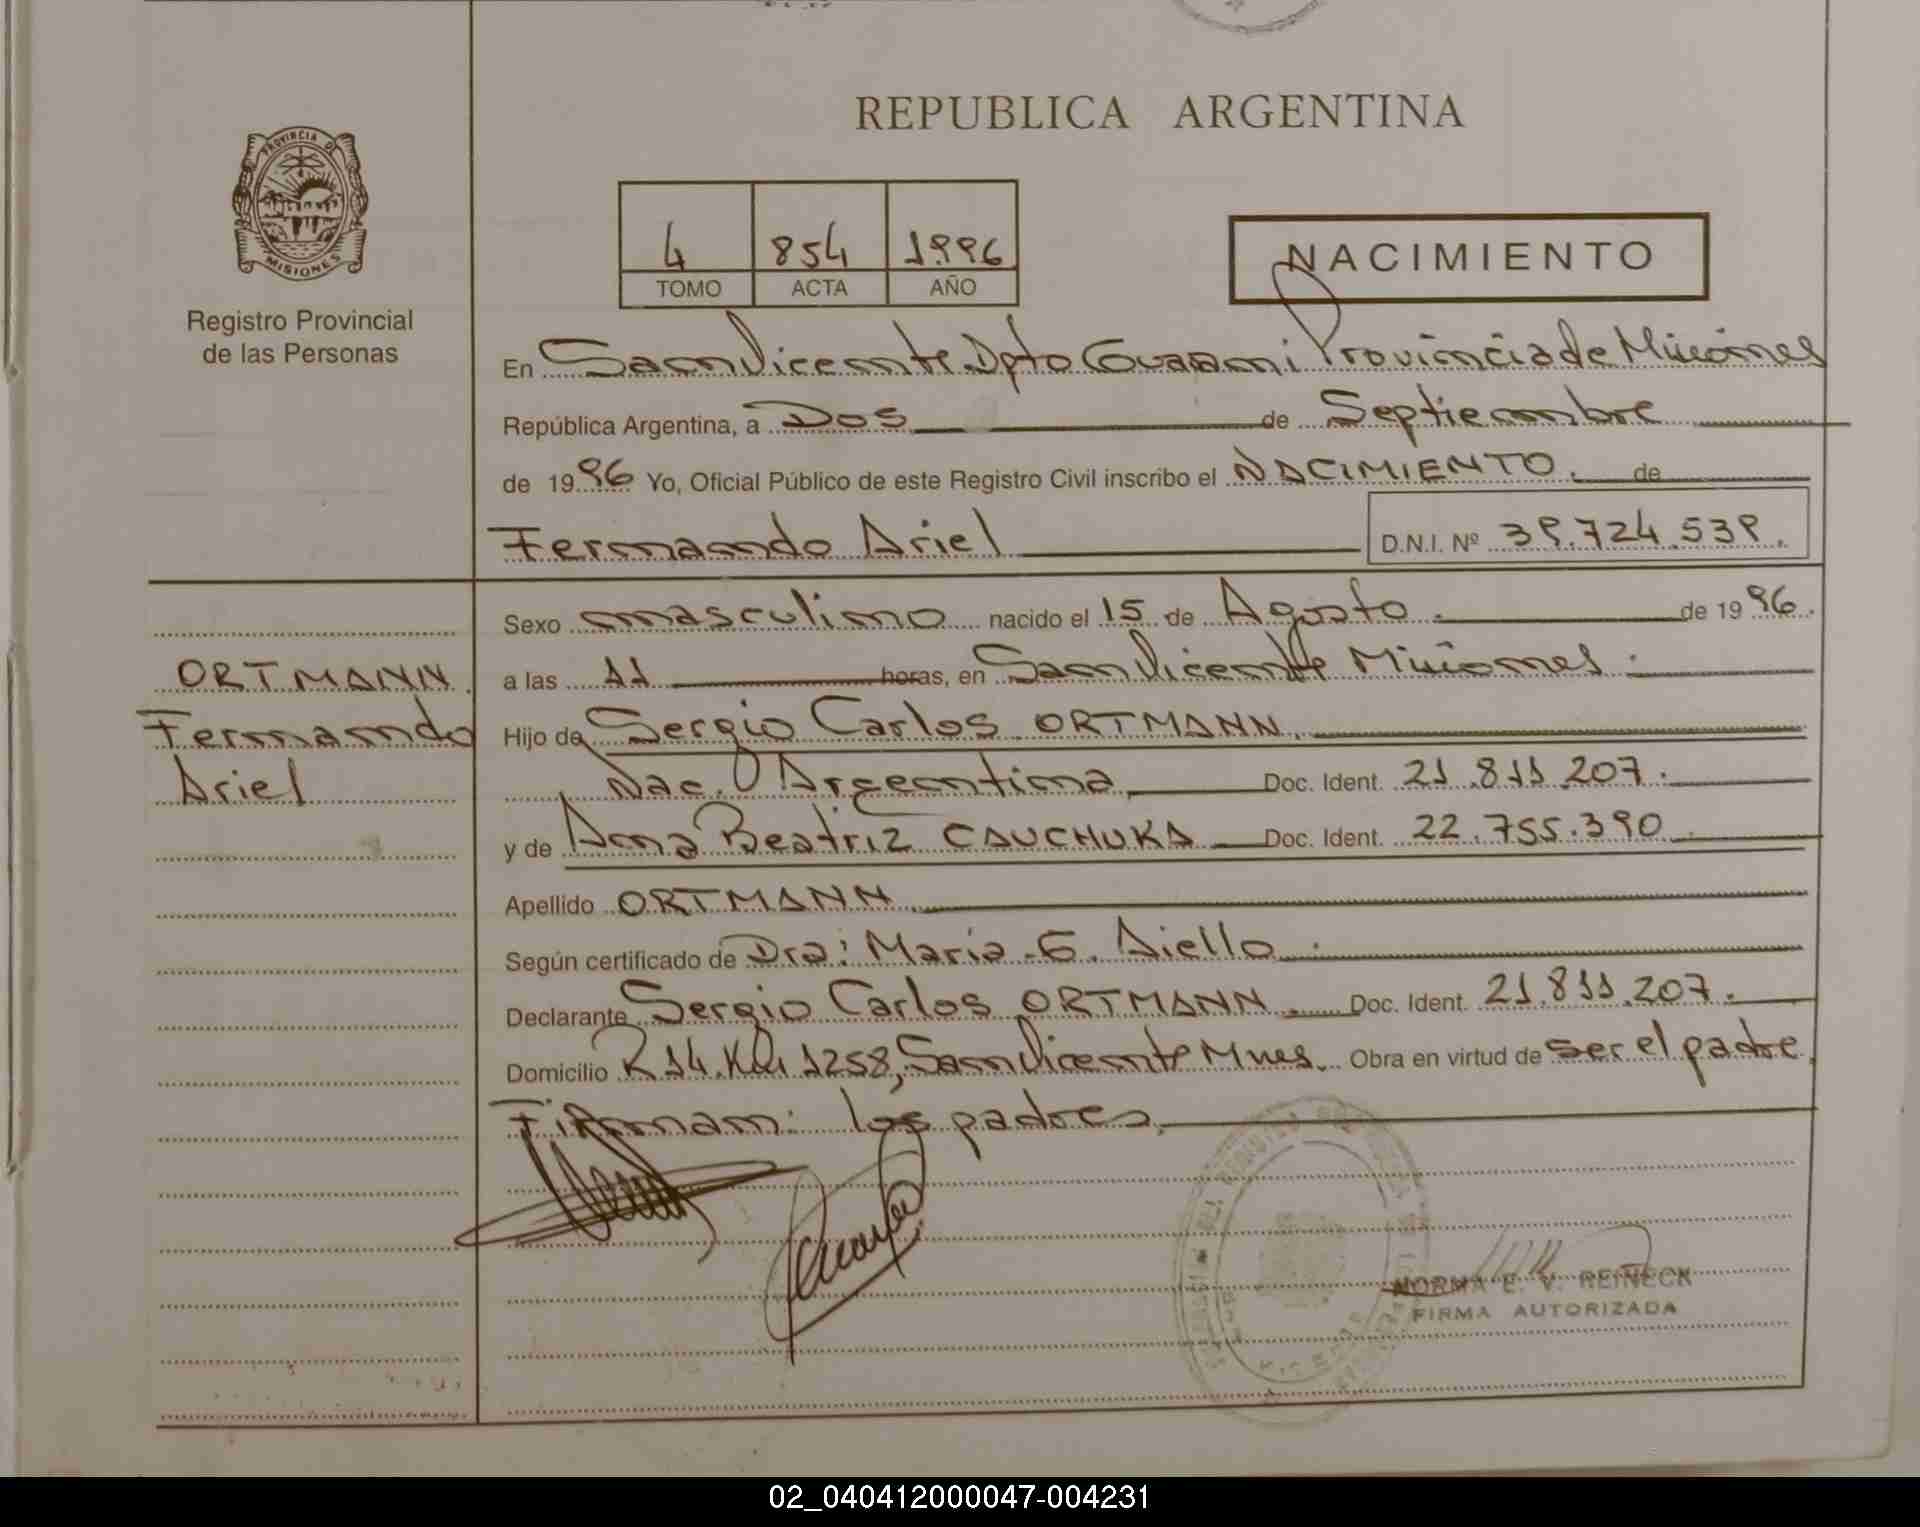 REPUBLICA ARGENTINA
PROVINCIA DE
MISIONES
Registro Provincial
de las Personas
4 854 1996
TOMO ACTA AÑO
NACIMIENTO
En San Vicente Dpto Guarani Provincia de Misiones
República Argentina, a Dos de Septiembre
de 1996 Yo, Oficial Público de este Registro Civil inscribo el NACIMIENTO. de
Fernando Ariel D.N.I. Nº 39.724.539.
ORTMANN
Fernando
Ariel
Sexo masculino nacido el 15 de Agosto. de 1996.
a las 11 horas, en San Vicente Misiones.
Hijo de Sergio Carlos ORTMANN.
Nac. Argentina Doc. Ident. 21.811.207.
y de Ana Beatriz CAUCHUKA Doc. Ident. 22.755.390
Apellido ORTMANN
Según certificado de Dra: Maria G. Aiello.
Declarante Sergio Carlos ORTMANN. Doc. Ident. 21.811.207.
Domicilio R 14. Km 1258, San Vicente Mnes. Obra en virtud de ser el padre.
Firman: los padres.
NORMA E. V. REINECK
FIRMA AUTORIZADA
02_040412000047-004231